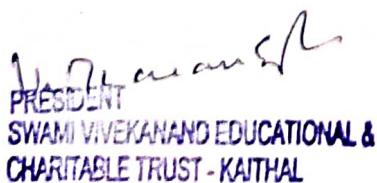 PRESIDENT
SWAMI VIVEKANAND EDUCATIONAL &
CHARITABLE TRUST - KAITHAL